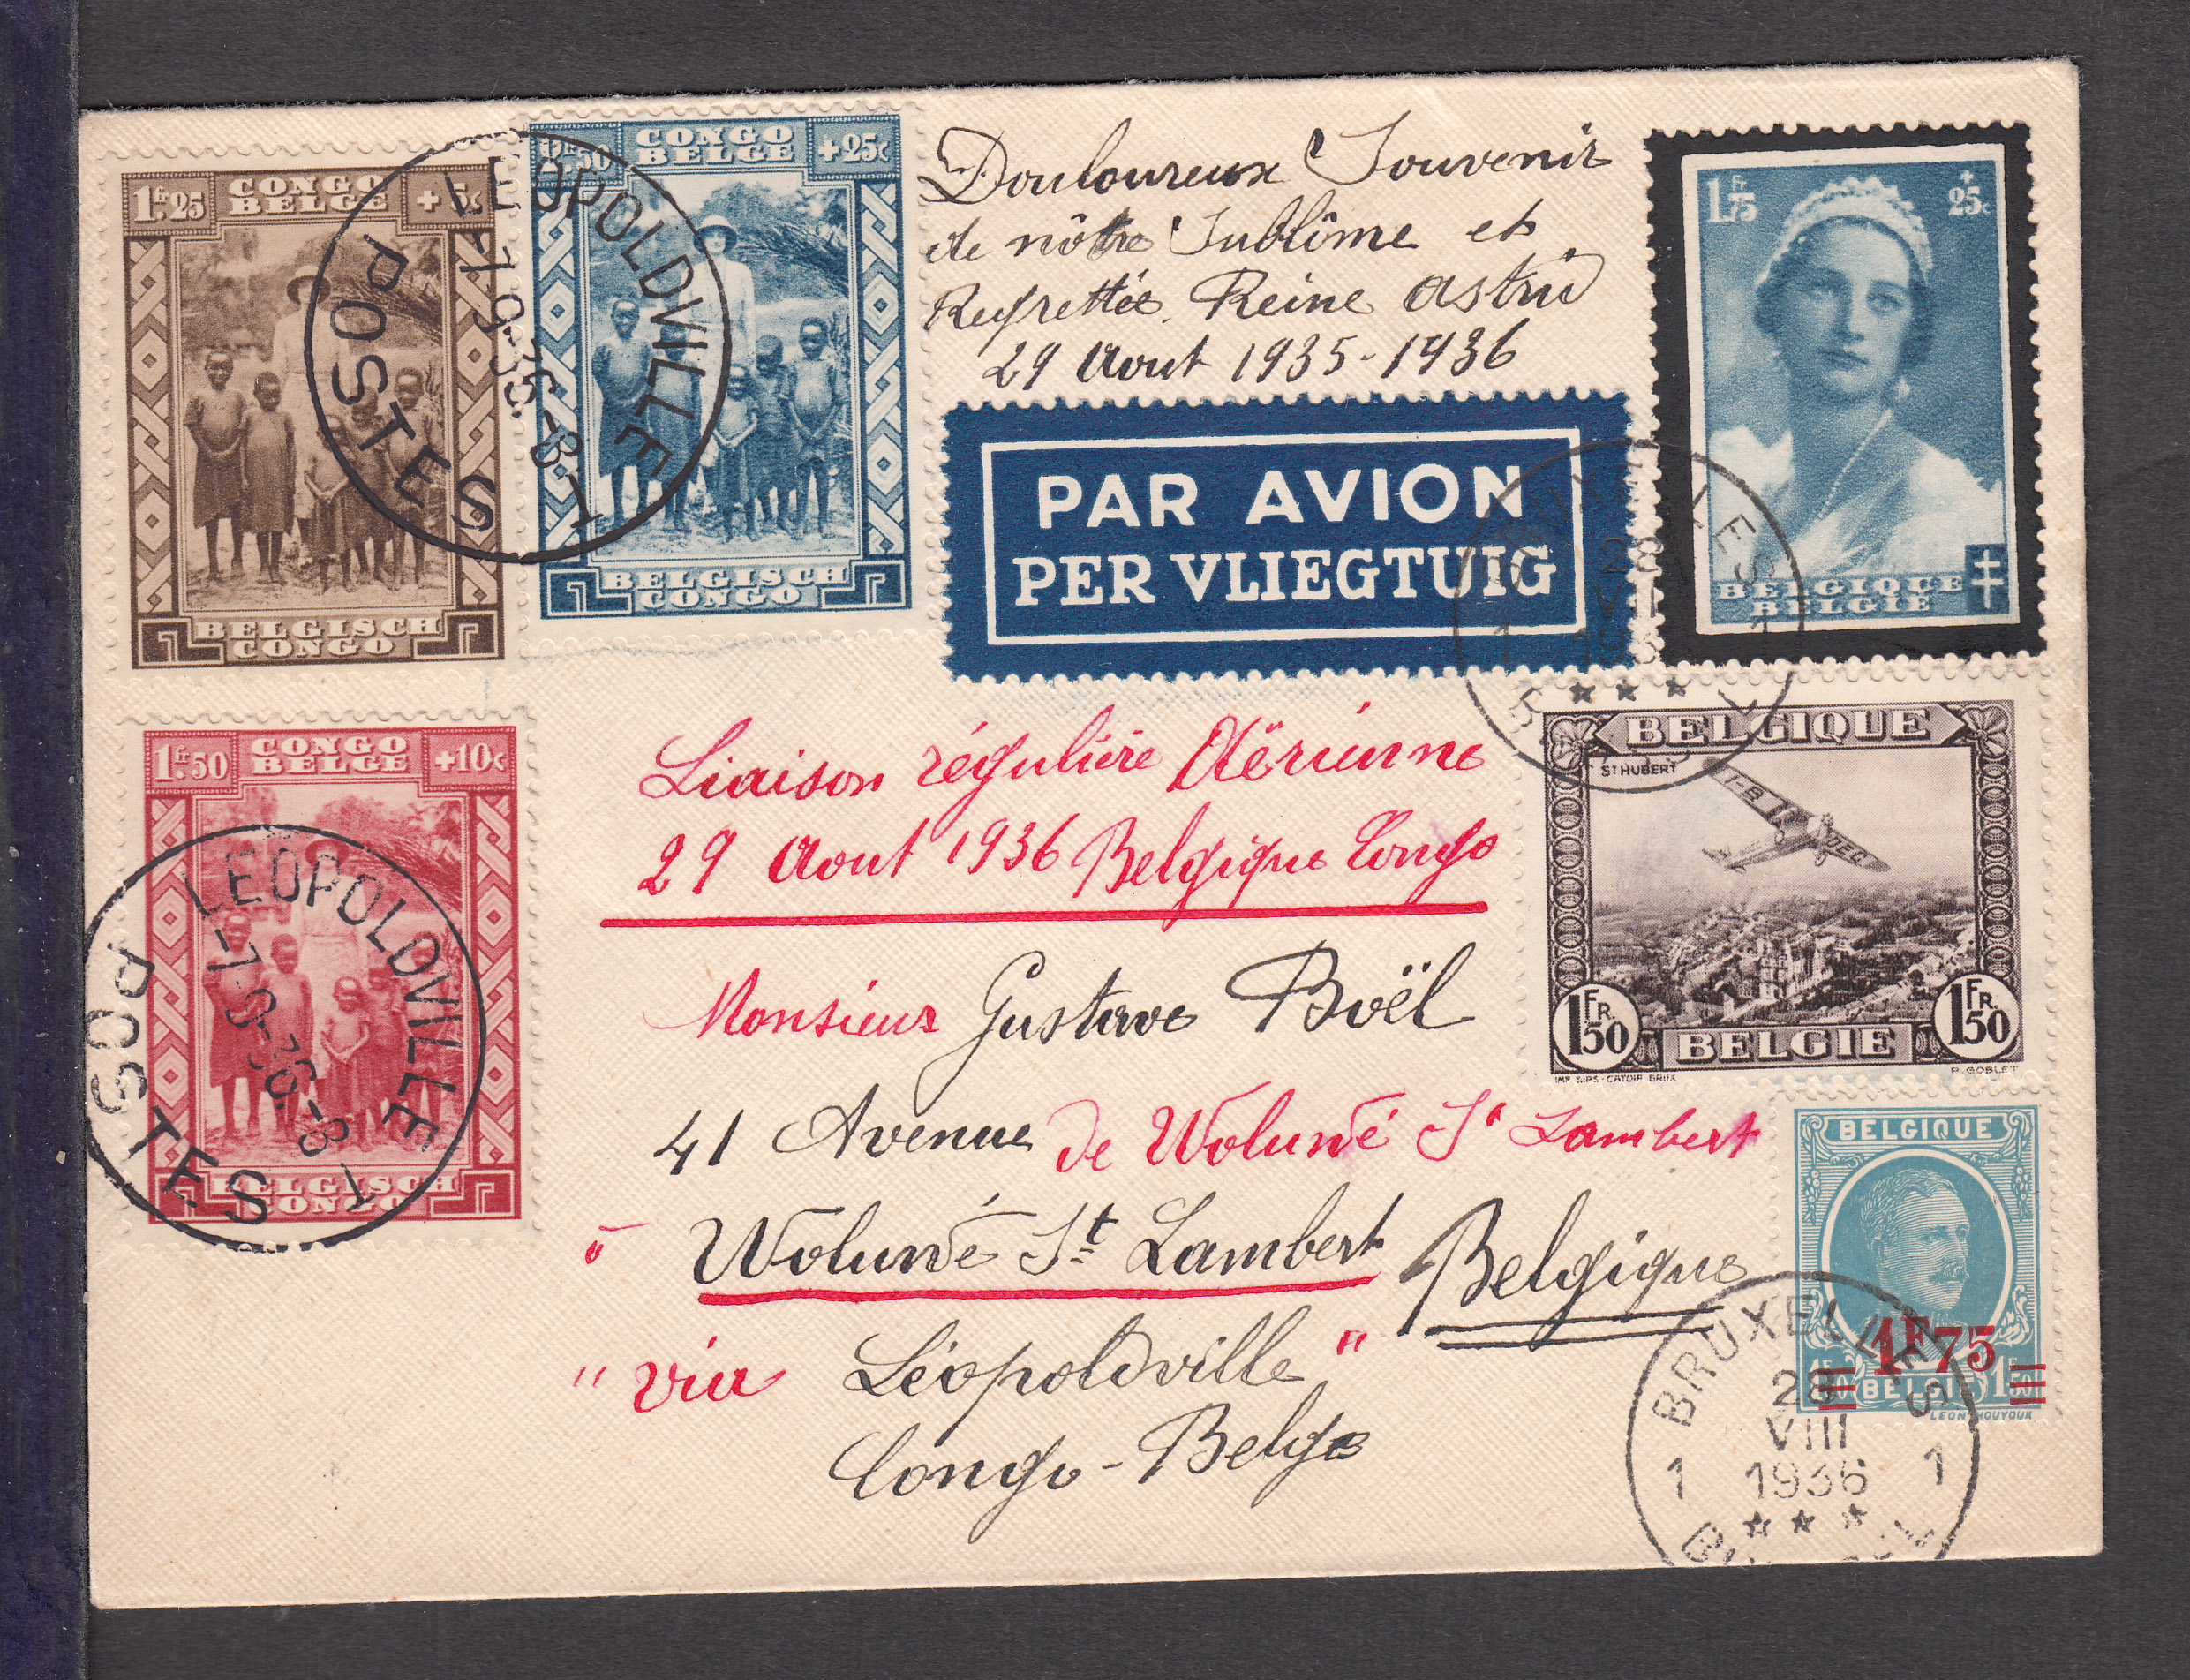 1fr.25 CONGO BELGE +5c
BELGISCH CONGO
1fr.50 CONGO BELGE +25c
BELGISCH CONGO
LEOPOLDVILLE
1-9-36-8
POSTES
Douloureux Souvenir
de nôtre Sublime et
Regrettée Reine Astrid
29 Aout 1935-1936
PAR AVION
PER VLIEGTUIG
1Fr75 +25c
BELGIQUE
BELGIE
BRUXELLES
28
1
★ ★ ★
1fr.50 CONGO BELGE +10c
BELGISCH CONGO
LEOPOLDVILLE
1-9-36-8
POSTES
Liaison régulière Aérienne
29 Aout 1936 Belgique Congo
BELGIQUE
ST HUBERT
1FR.50 1FR.50
BELGIE
IMP. SIPS-CATOIR BRUX P. GOBLET
Monsieur Gustave Boël
41 Avenue de Woluwé St Lambert
à Woluwé St Lambert Belgique
"via Léopoldville"
Congo-Belge
BELGIQUE
1F75
BELGIE 1F50
LEON HOUYOUX
BRUXELLES
28
VIII
1 1936 1
★ ★ ★
BRUSSEL